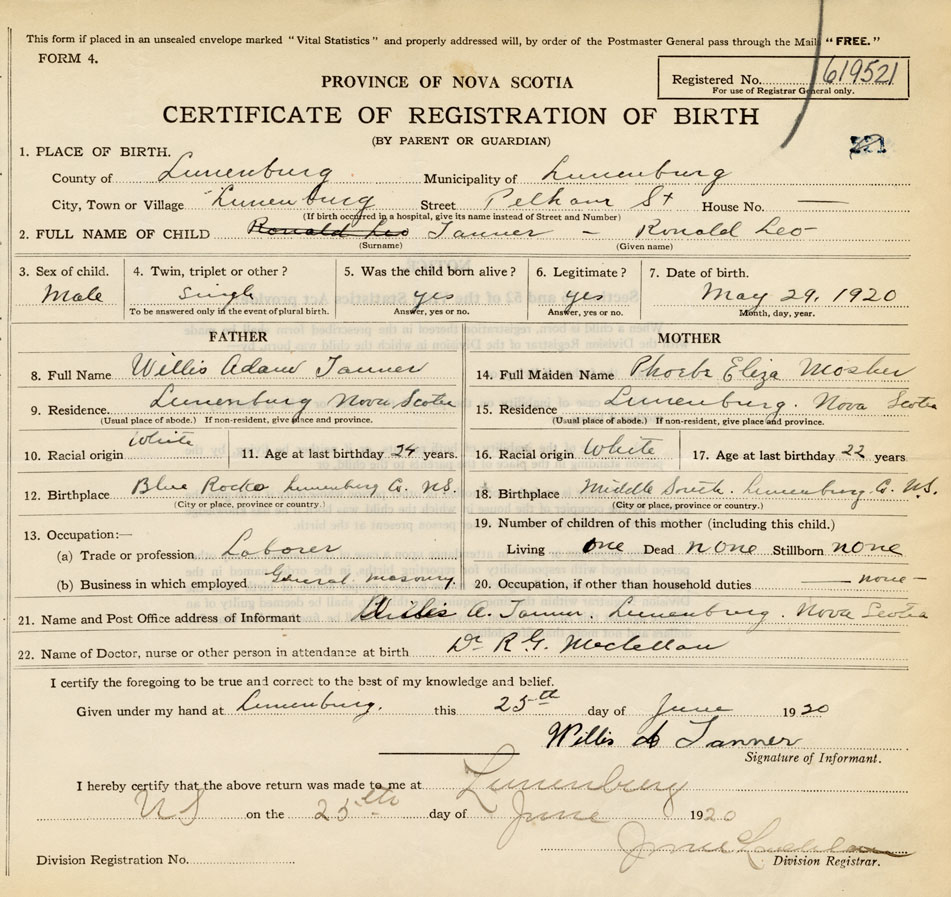 This form if placed in an unsealed envelope marked "Vital Statistics" and properly addressed will, by order of the Postmaster General pass through the Mail "FREE."
FORM 4.
Registered No. 619521
For use of Registrar General only.
PROVINCE OF NOVA SCOTIA
CERTIFICATE OF REGISTRATION OF BIRTH
(BY PARENT OR GUARDIAN)
1. PLACE OF BIRTH.
County of Lunenburg Municipality of Lunenburg
City, Town or Village Lunenburg Street Pelham St House No. —
(If birth occurred in a hospital, give its name instead of Street and Number)
2. FULL NAME OF CHILD Ronald Leo Tanner - Ronald Leo-
(Surname) (Given name)
3. Sex of child. 4. Twin, triplet or other? 5. Was the child born alive? 6. Legitimate? 7. Date of birth.
Male Single yes yes May 29, 1920
To be answered only in the event of plural birth. Answer, yes or no. Answer, yes or no. Month, day, year.
FATHER MOTHER
8. Full Name Willis Adam Tanner
14. Full Maiden Name Phoebe Eliza Mosher
9. Residence. Lunenburg Nova Scotia
(Usual place of abode.) If non-resident, give place and province.
15. Residence Lunenburg. Nova Scotia
(Usual place of abode.) If non-resident, give place and province.
10. Racial origin White 11. Age at last birthday 24 years.
16. Racial origin White 17. Age at last birthday 22 years
12. Birthplace Blue Rocks Lunenburg Co. N.S.
(City or place, province or country.)
18. Birthplace Middle South. Lunenburg Co. N.S.
(City or place, province or country.)
13. Occupation:—
(a) Trade or profession Laborer
(b) Business in which employed General masonry.
19. Number of children of this mother (including this child.)
Living one Dead none Stillborn none
20. Occupation, if other than household duties —none—
21. Name and Post Office address of Informant Willis A. Tanner. Lunenburg. Nova Scotia
22. Name of Doctor, nurse or other person in attendance at birth Dr R. G. McClellan
I certify the foregoing to be true and correct to the best of my knowledge and belief.
Given under my hand at Lunenburg. this 25th day of June 1920
Willis A Tanner
Signature of Informant.
I hereby certify that the above return was made to me at Lunenburg
NS on the 25th day of June 1920
Division Registration No.
Division Registrar.